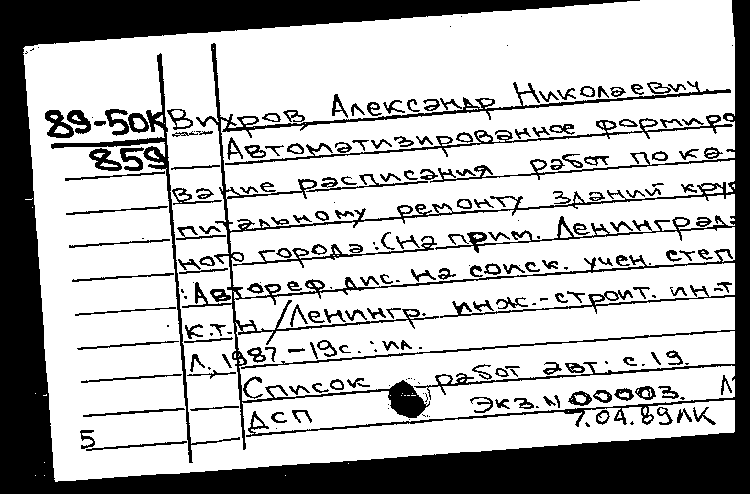 89-50К Вихров, Александр Николаевич.
859 Автоматизированное формиро
вание расписания работ по ка-
питальному ремонту зданий круп
ного города: (На прим. Ленинграда
: Автореф. дис. на соиск. учен. степ
к.т.н. / Ленингр. инж.-строит. ин-т
Л., 1987. - 19 с. : ил.
Список работ авт.: с. 19.
ДСП Экз. N 00003.
5 7.04.89 ЛК